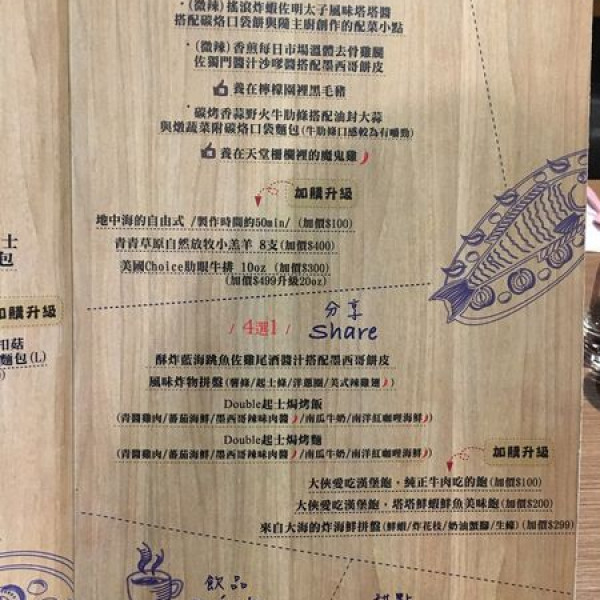 (微辣)搖滾炸蝦佐明太子風味塔塔醬
搭配碳烙口袋餅與隨主廚創作的配菜小點
(微辣)香煎每日市場溫體去骨雞腿
佐獨門醬汁沙嗲醬搭配墨西哥餅皮
養在檸檬園裡黑毛豬
碳烤香蒜野火牛肋條搭配油封大蒜
與燉蔬菜附碳烙口袋麵包(牛肋條口感較為有嚼勁)
養在天堂柵欄裡的魔鬼雞
加購升級
地中海的自由式 /製作時間約50min/ (加價$100)
青青草原自然放牧小羔羊 8支(加價$400)
美國Choice肋眼牛排 10oz (加價$300)
(加價$499升級20oz)
/ 4選1 /
分享
Share
酥炸藍海跳魚佐雞尾酒醬汁搭配墨西哥餅皮
風味炸物拼盤(薯條/起士條/洋蔥圈/美式辣雞翅)
Double起士焗烤飯
(青醬雞肉/蕃茄海鮮/墨西哥辣味肉醬/南瓜牛奶/南洋紅咖哩海鮮)
Double起士焗烤麵
(青醬雞肉/蕃茄海鮮/墨西哥辣味肉醬/南瓜牛奶/南洋紅咖哩海鮮)
加購升級
大俠愛吃漢堡飽，純正牛肉吃的飽(加價$100)
大俠愛吃漢堡飽，塔塔鮮蝦鮮魚美味飽(加價$200)
來自大海的炸海鮮拼盤(鮮蝦/炸花枝/奶油蟹腳/生蠔)(加價$299)
飲品
士
包
加購升級
麵包(L)